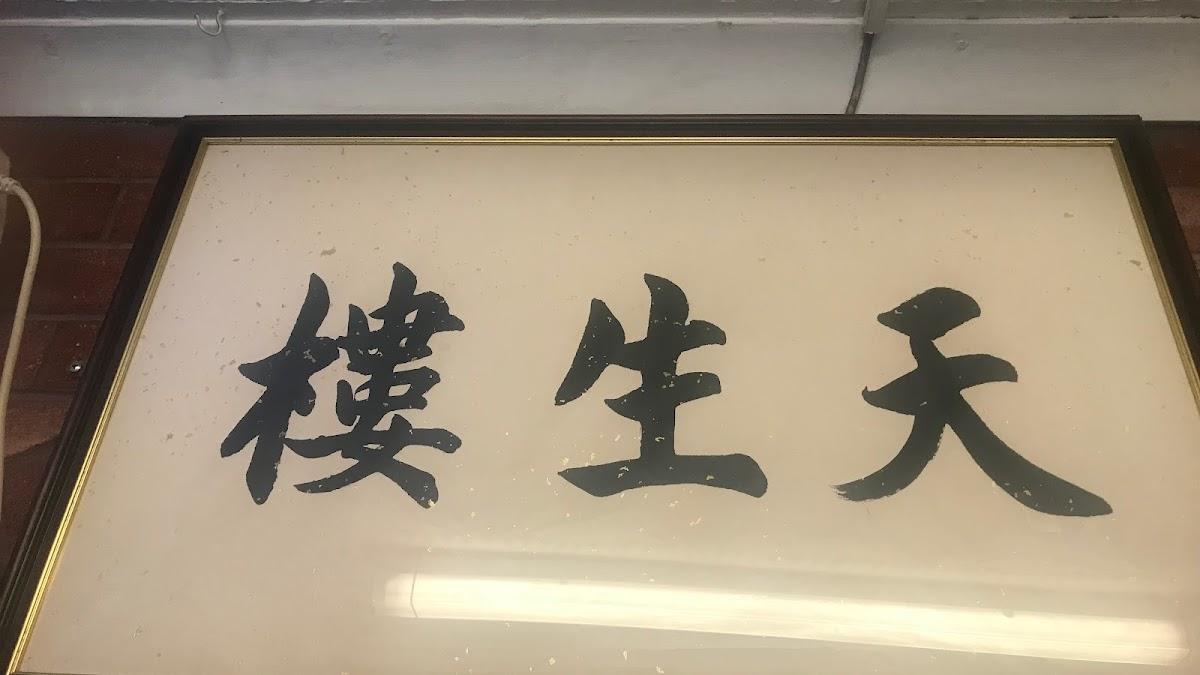 天生樓